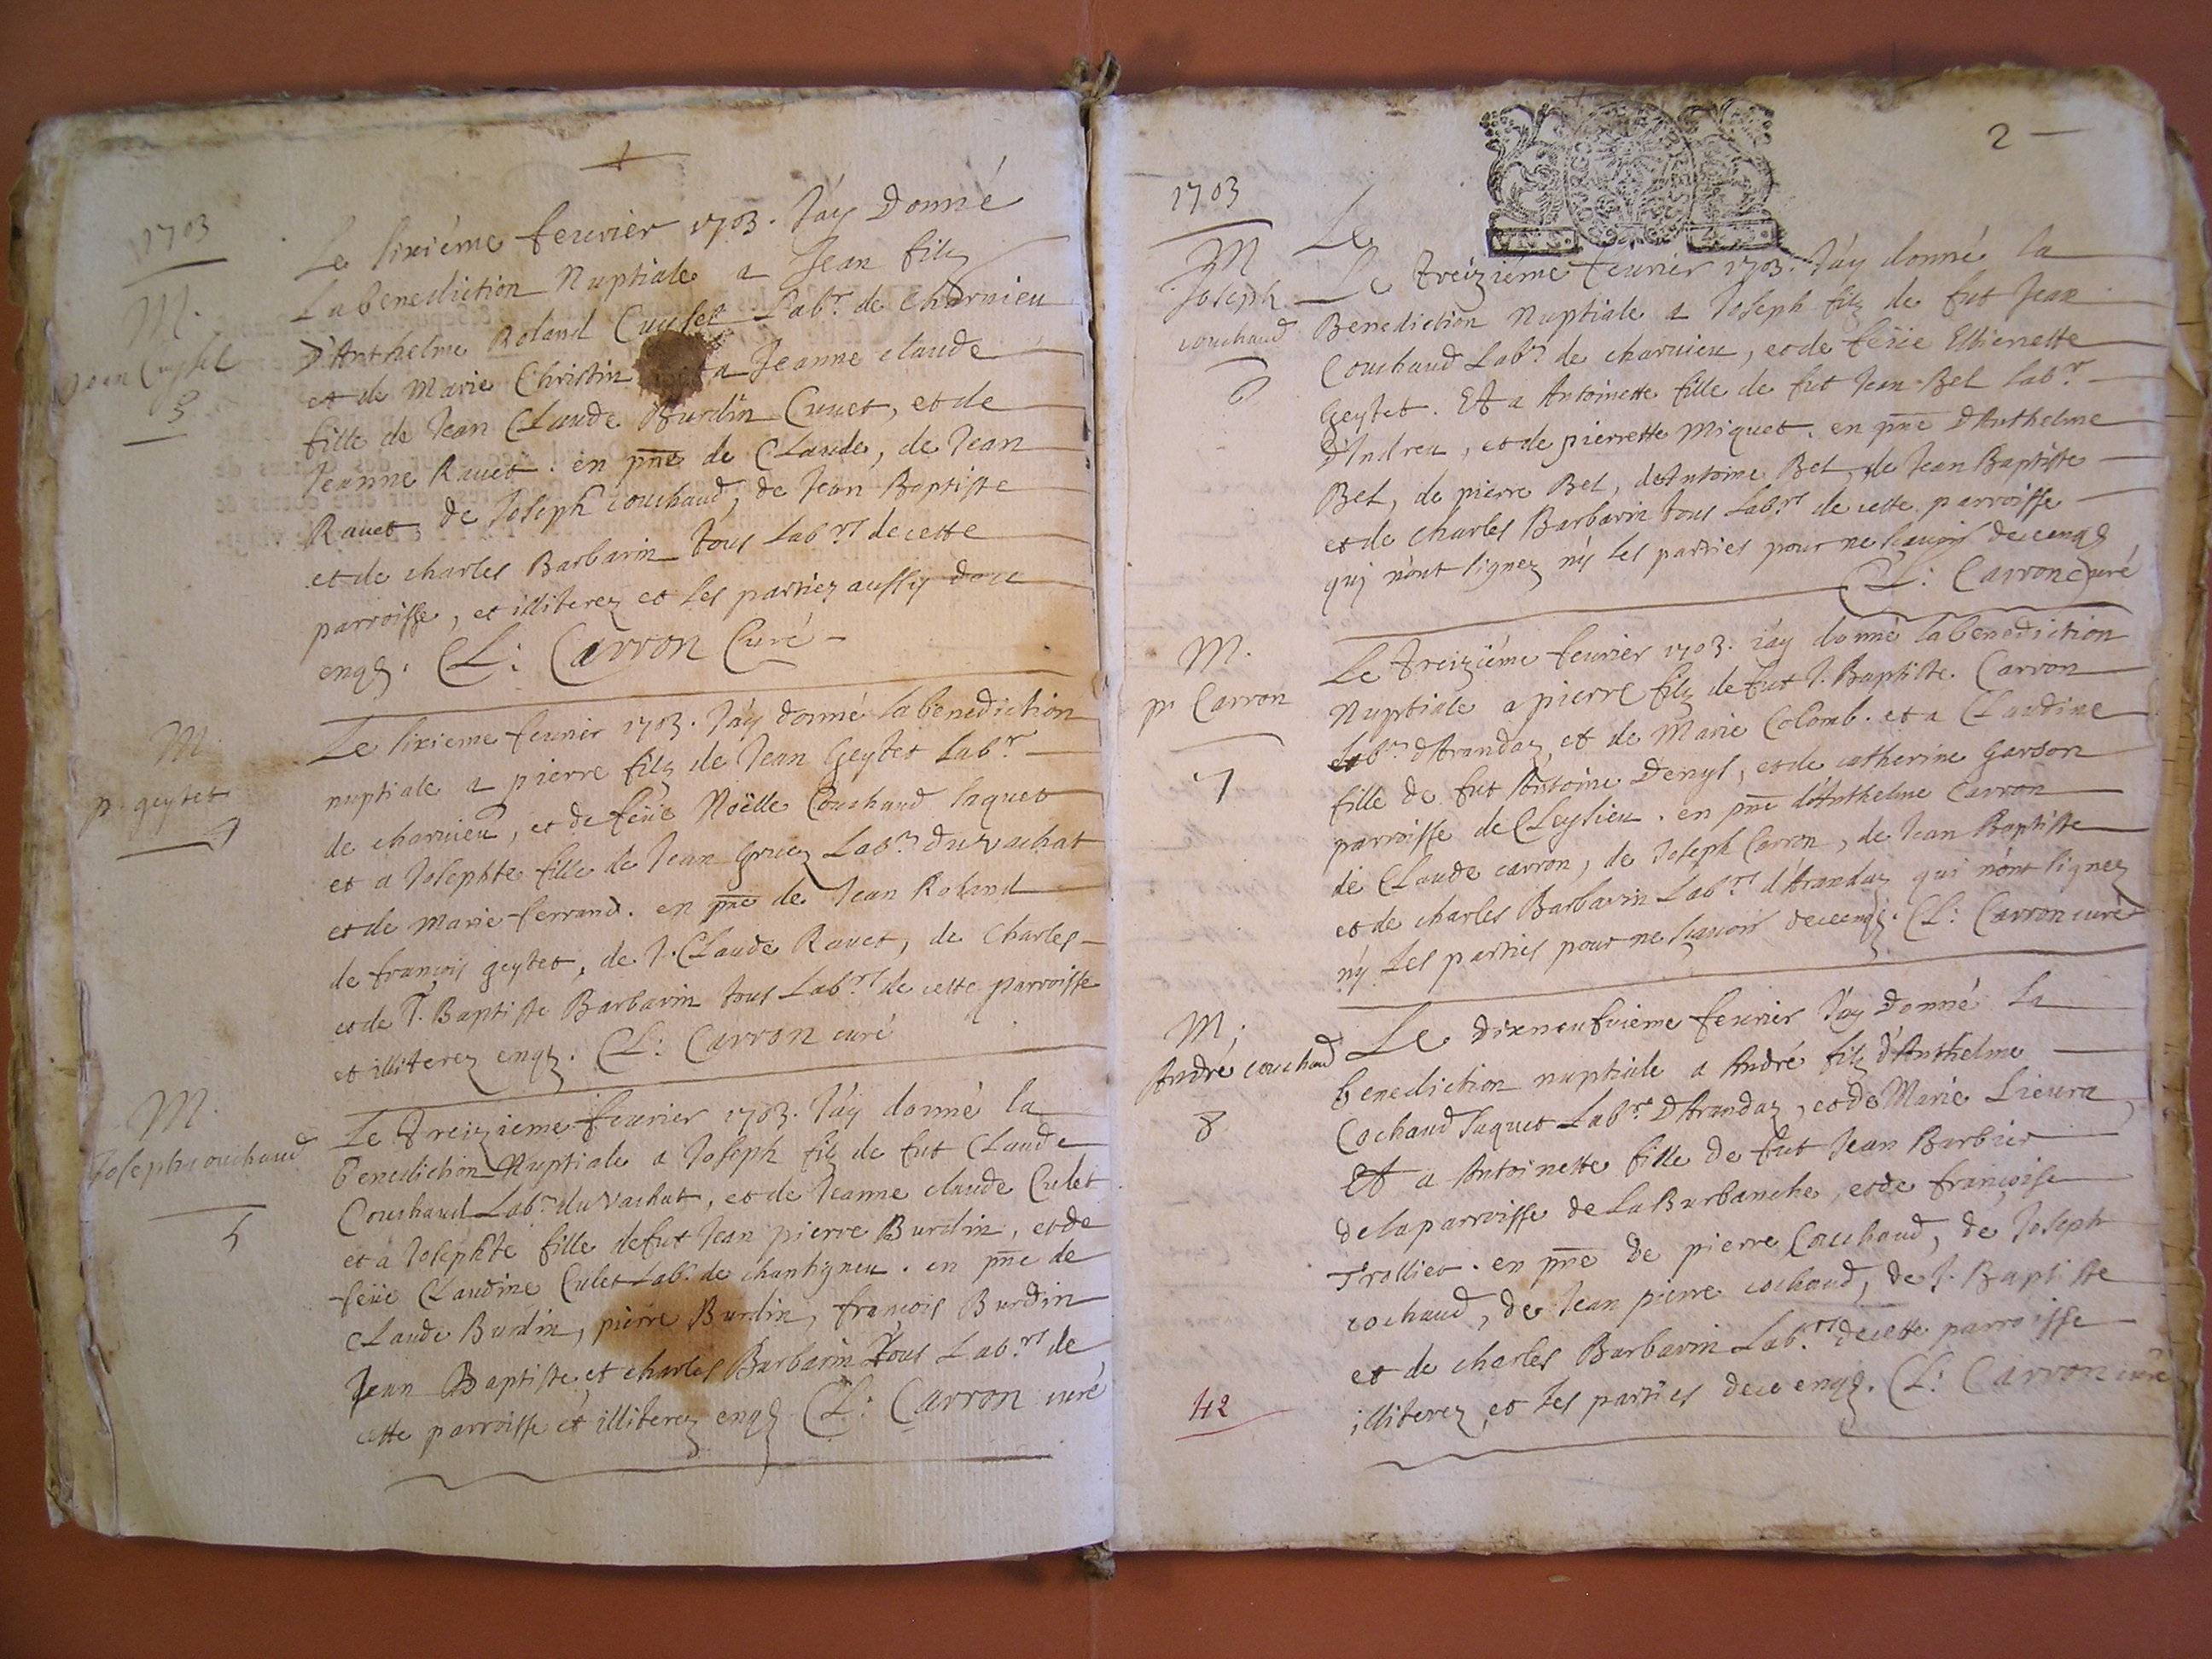 1703
M.
Jean Cuysset
3
Le sixiéme feuvrier 1703. J'ay Donné
La benediction Nuptiale a Jean filz
D'Anthelme Roland Cuysset Lab.r de Charuieu
et de Marie Christin a Jeanne claude
fille de Jean CLaude Burdin Cuuet, et de
Jeanne Rauet. en pn̄e de CLaude, de Jean
Rauet, de Joseph couchaud, de Jean Baptiste
et de charles Barbarin tous Lab.rs de cette
parroisse, et illiterez et les partiez aussy de ce
enqs. CL: Carron Curé
M.
p. geytet
4
Le sixieme feurier 1703. J'ay donné la benediction
nuptiale a pierre filz de Jean Geytet Lab.r
de charuieu, et de feüe Noëlle Couchaud Jaquet
et a Josephte fille de Jean Gruez Lab.r du vachat
et de Marie ferrand. en pn̄e de Jean Roland
de françois geytet, de J. CLaude Rauet, de Charles
et de J. Baptiste Barbarin tous Lab.rs de cette parroisse
et illiterez enqs. CL: Carron curé
M.
Joseph couchaud
5
Le Treizieme feurier 1703. J'ay donné la
benediction Nuptiale a Joseph filz de fut CLaude
Couchaud Lab.r du vachat, et de Jeanne claude Culet
et a Josephte fille de fut Jean pierre Burdin, et de
feüe CLaudine Culet Lab.r de chantigneu. en pn̄e de
CLaude Burdin, pierre Burdin, françois Burdin
Jean Baptiste et charles Barbarin Tous Lab.rs de
cette parroisse et illiterez enqs CL: Carron curé
2
1703
M
Joseph
couchaud
6
Le
Le Treiziéme feurier 1703. J'ay donné la
Benediction Nuptiale a Joseph filz de fut Jean
Couchaud Lab.r de charuieu, et de feüe Estienette
Geytet. Et a Antoinette fille de fut Jean Bel Lab.r
D'Indreu, et de pierrette Miquet. en pn̄e D'Anthelme
Bel, de pierre Bel, de Antoine Bel, de Jean Baptiste
et de charles Barbarin tous Lab.rs de cette parroisse
qui n'ont signez n'y les parties pour ne sçauoir de ce enqs
CL: Carron Curé
M.
pr Carron
7
Le Treiziéme feurier 1703. j'ay donné la benediction
Nuptiale a pierre filz de fut J. Baptiste Carron
Lab.r d'Arandaz et de Marie Colomb. et a CLaudine
fille de fut Antoine Denys, et de catherine Garson
parroisse de CLeysieu. en pn̄e d'Anthelme Carron
de CLaude carron, de Joseph Carron, de Jean Baptiste
et de charles Barbarin Lab.rs d'Arandaz qui n'ont signez
n'y les parties pour ne sçauoir de ce enqs. CL: Carron curé
M.
André couchaud
8
Le Dixneufuieme feurier J'ay Donné la
benediction nuptiale a André filz d'Anthelme
Cochaud Jaquet Lab.r D'Arandaz, et de Marie Lieura,
Et a Antoinette fille de fut Jean Barbier
de la parroisse de La Burbanche, et de françoise
Trolliet. en pn̄e de pierre Couchaud, de Joseph
cochaud, de Jean pierre cochaud, de J. Baptiste
et de charles Barbarin Lab.rs de cette parroisse
illiterez, et les parties de ce enqs. CL: Carron curé
42